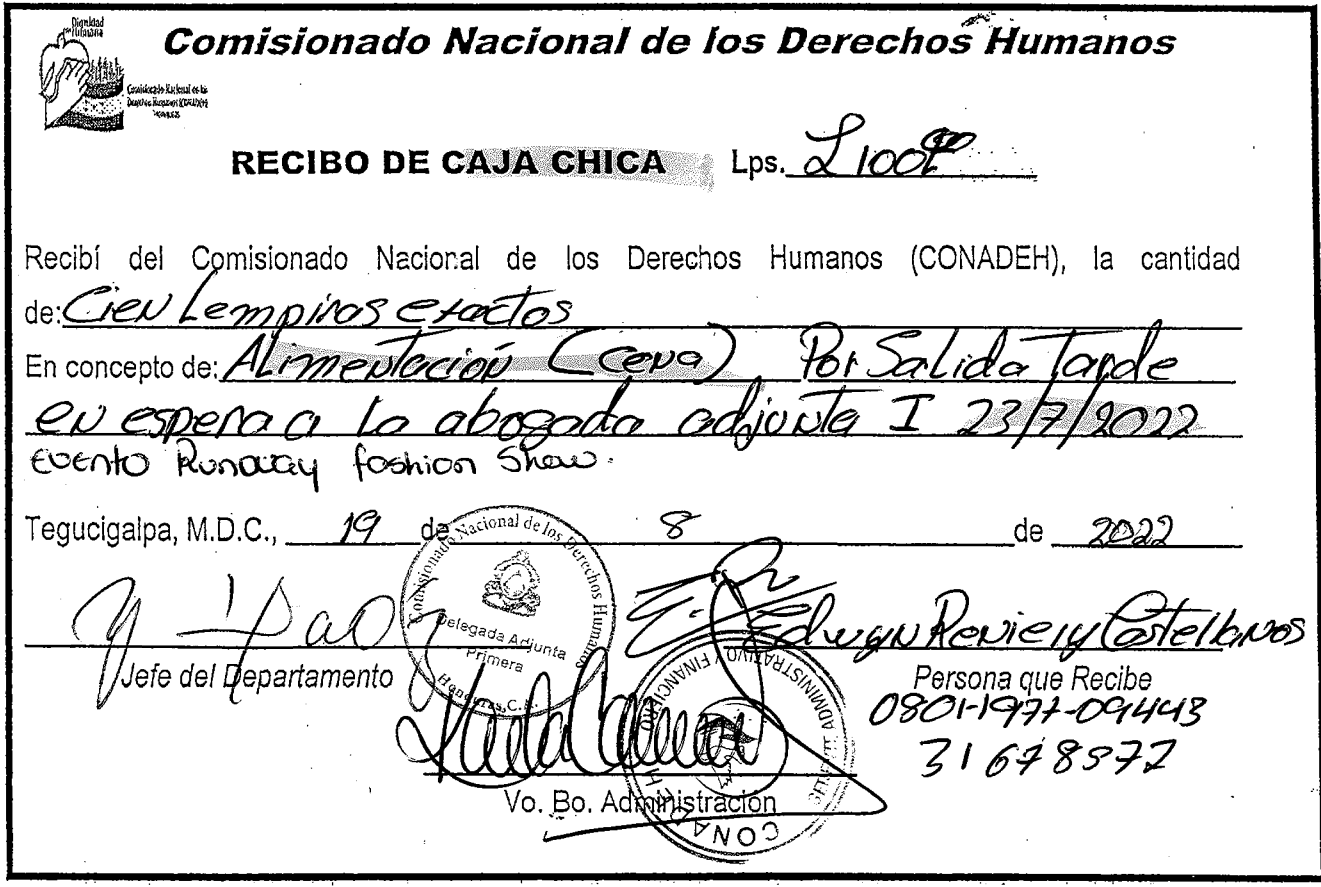 Dignidad
Humana
Comisionado Nacional de los Derechos Humanos
Comisionado Nacional de los
Derechos Humanos (CONADEH)
RECIBO DE CAJA CHICA Lps. L100.00
Recibí del Comisionado Nacional de los Derechos Humanos (CONADEH), la cantidad
de: Cien Lempiras exactos
En concepto de: Alimentación (cena) Por Salida Tarde
en espera a la abogada adjunta I 23/7/2022
Evento Runway fashion Show.
Tegucigalpa, M.D.C., 19 de 8 de 2022
Comisionado Nacional de los Derechos Humanos
Delegada Adjunta
Primera
Honduras, C.A.
Edwyn Reniery Castellanos
Jefe del Departamento
Persona que Recibe
0801-1977-09443
31678977
ADMINISTRATIVO Y FINANCIERO
CONADEH
Vo. Bo. Administración